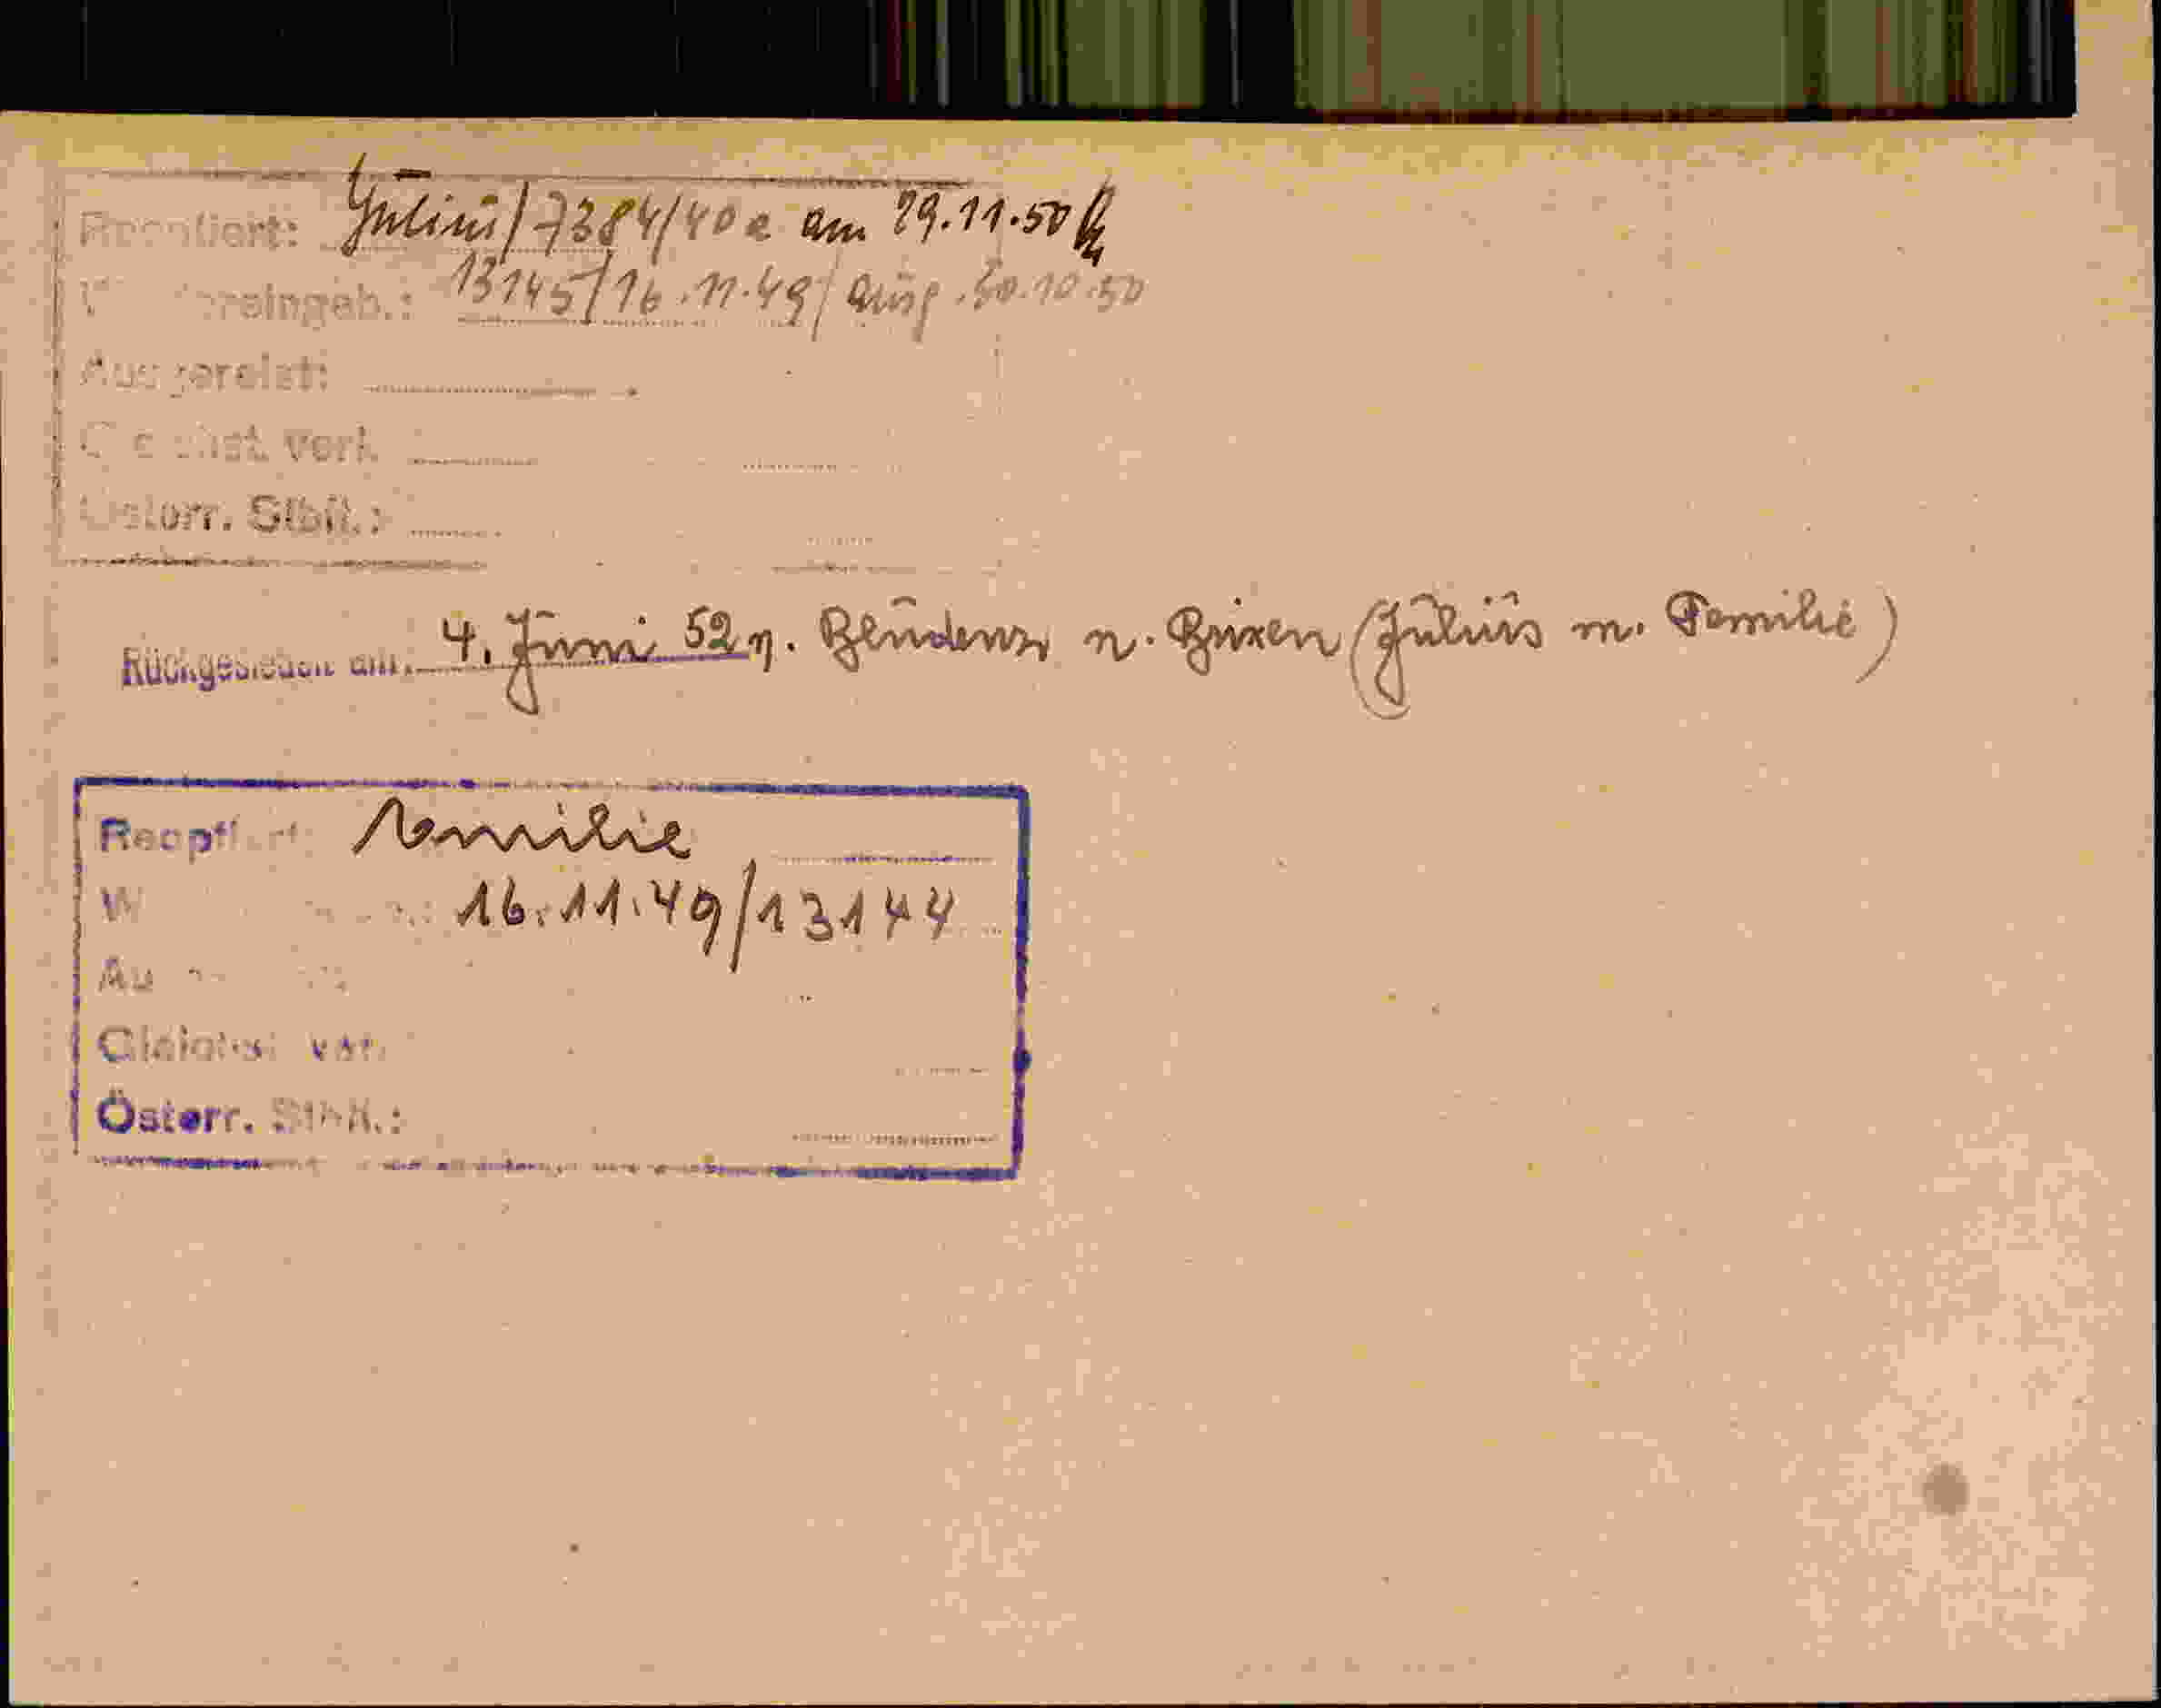 Reoptiert: Julius/7384/40e am 29.11.50
13145/16.11.49/ausg. 30.10.50
Ausgereist:
verl.
Österr. Stbft.:
Rückgesiedelt am: 4. Juni 52 n. Bludenz n. Brixen (Julius m. Familie)
Reoptiert: Familie
16.11.49/13144
Gleichst. verl.
Österr. Stbft.: